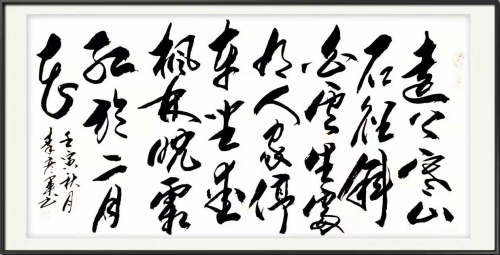 遠上寒山
石徑斜
白雲生處
有人家停
車坐愛
楓林晚霜
紅於二月
花
壬寅秋月